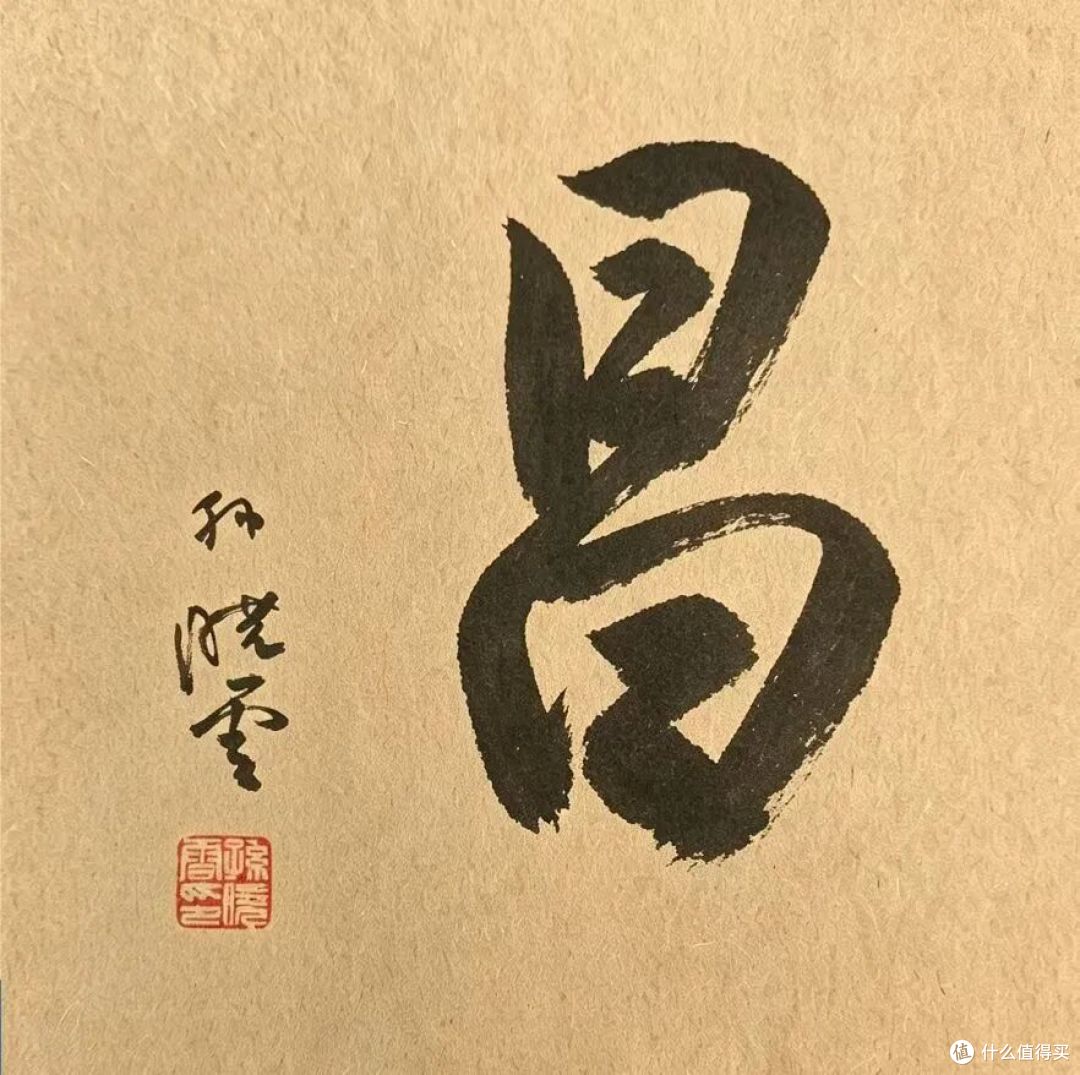 昌
孙晓云
孙晓云印
什么值得买